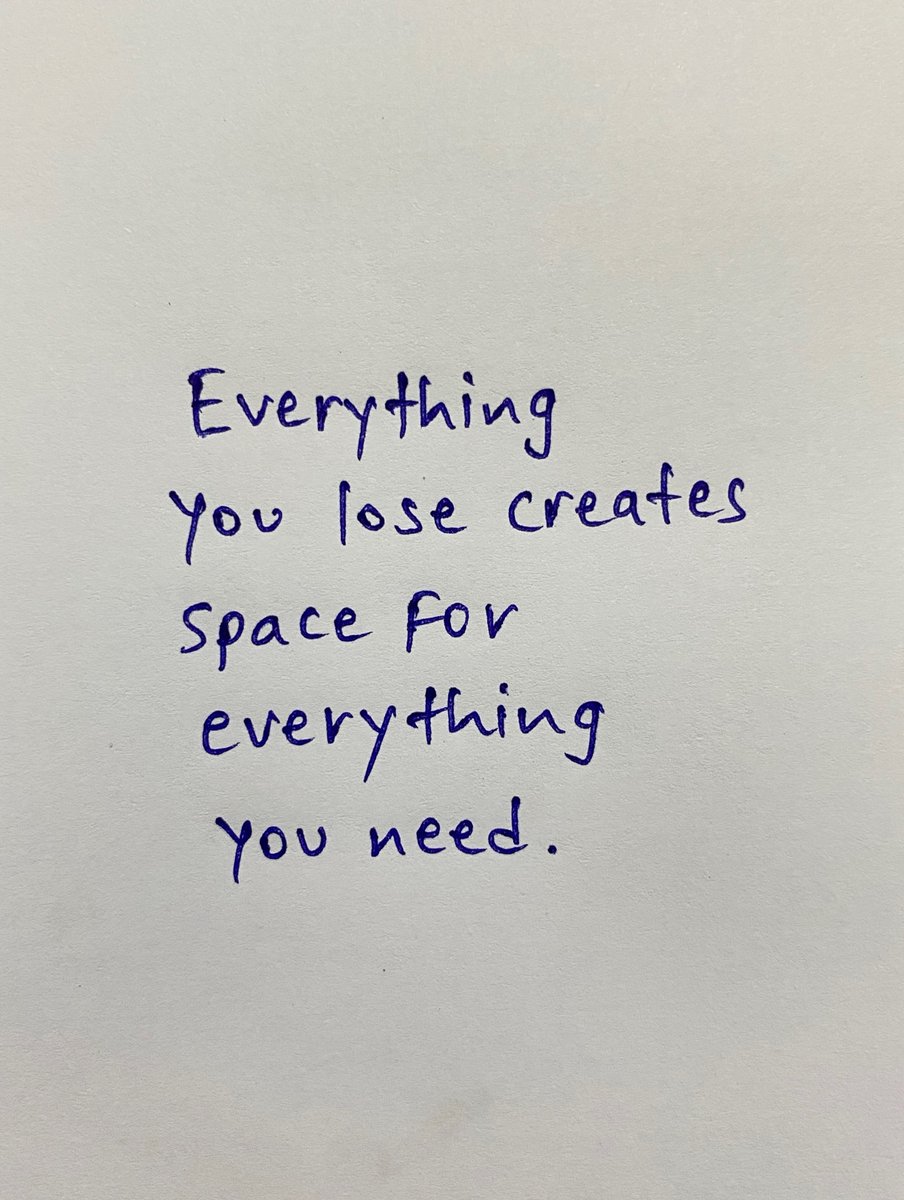 Everything
you lose creates
space for
everything
you need.